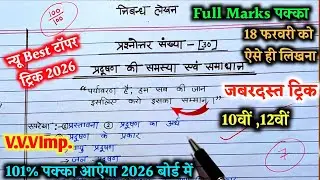 100
100
निबन्ध लेखन
Full Marks पक्का
18 फरवरी को
ऐसे ही लिखना
न्यू Best टॉपर
ट्रिक 2026
प्रश्नोत्तर संख्या - [30]
प्रदूषण की समस्या एवं समाधान
"पर्यावरण है हम सब की जान
इसलिए करो इसका सम्मान"
जबरदस्त ट्रिक
10वीं ,12वीं
रूपरेखा - (1) प्रस्तावना (2) प्रदूषण का अर्थ
प्रदूषण के प्रकार
प्रदूषण
V.V.VImp.
जल प्रदूषण
101% पक्का आऐगा 2026 बोर्ड में
7